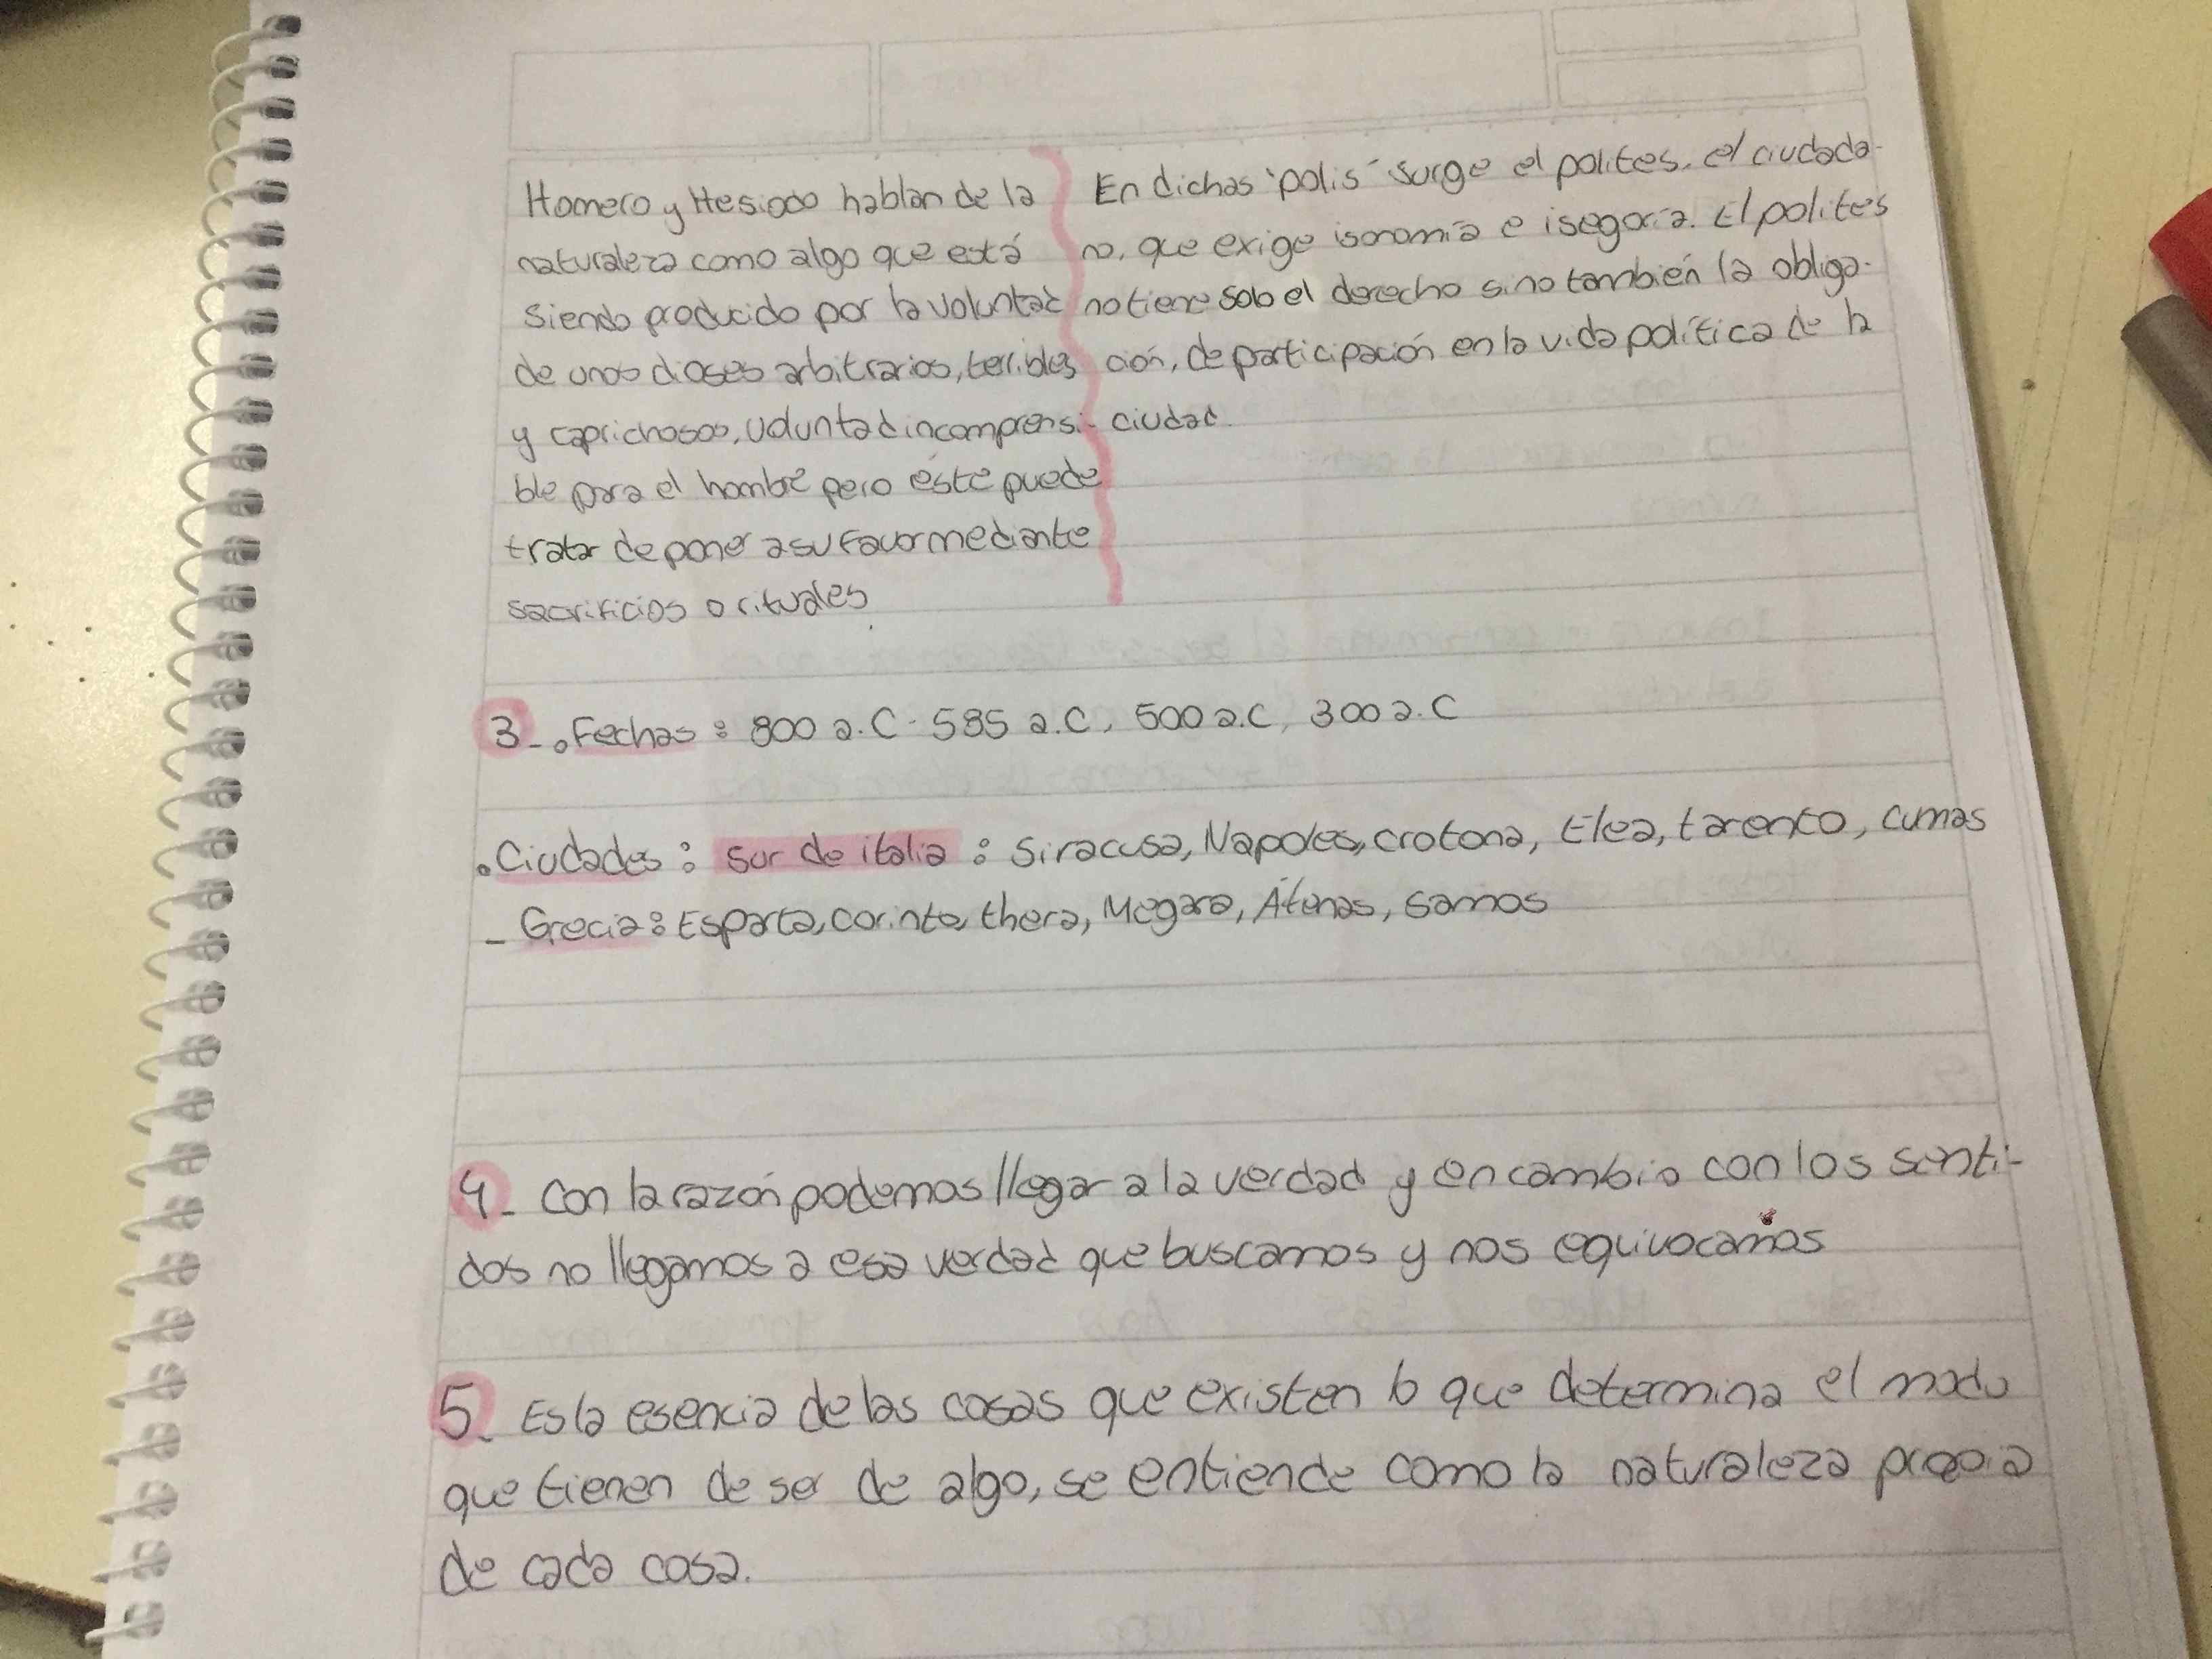 Homero y Hesiodo hablan de la
naturaleza como algo que está
siendo producido por la voluntad
de unos dioses arbitrarios, terribles
y caprichosos, voluntad incomprensi-
ble para el hombre pero éste puede
tratar de poner a su favor mediante
sacrificios o rituales.
En dichas "polis" surge el polites, el ciudada-
no, que exige isonomía e isegoría. El polites
no tiene solo el derecho sino también la obliga-
ción, de participación en la vida política de la
ciudad.
3-. Fechas: 800 a.C - 585 a.C, 500 a.C, 300 a.C
. Ciudades: sur de italia: Siracusa, Napoles, crotona, Elea, tarento, cumas
- Grecia: Esparta, corinto, thera, Megara, Átenas, samos
4- Con la razón podemos llegar a la verdad y en cambio con los senti-
dos no llegamos a esa verdad que buscamos y nos equivocamos
5- Es la esencia de las cosas que existen lo que determina el modo
que tienen de ser de algo, se entiende como la naturaleza propia
de cada cosa.